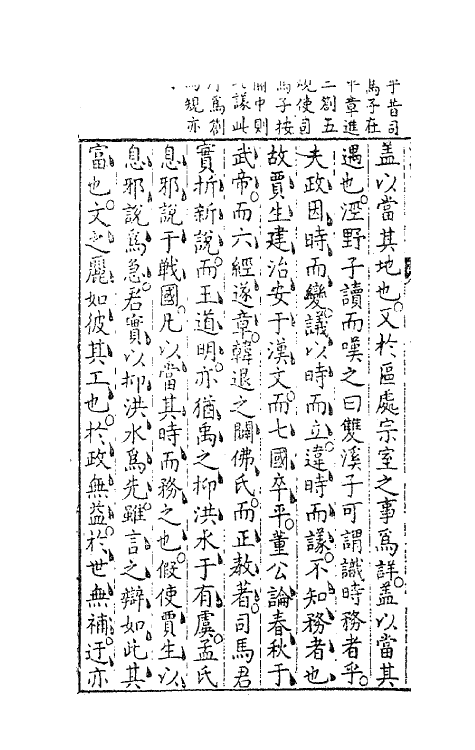 昔司
馬子在
章進
二劄五
使司
馬子按
中則
議此
爲劄
規亦
盖以當其地也。又於區處宗室之事爲詳。盖以當其
遇也。涇野子讀而嘆之曰雙溪子可謂識時務者乎。
夫政因時而變、議以時而立、違時而議、不知務者也、
故賈生建治安于漢文、而七國卒平。董公論春秋于
武帝、而六經遂章。韓退之闢佛氏、而正教著。司馬君
實折新說、而王道明、亦猶禹之抑洪水于有虞。孟氏
息邪說于戰國。凡以當其時而務之也。假使賈生以
息邪說爲急。君實以抑洪水爲先。雖言之辯如此其
富也。文之麗如彼其工也。於政無益。於世無補。迂亦